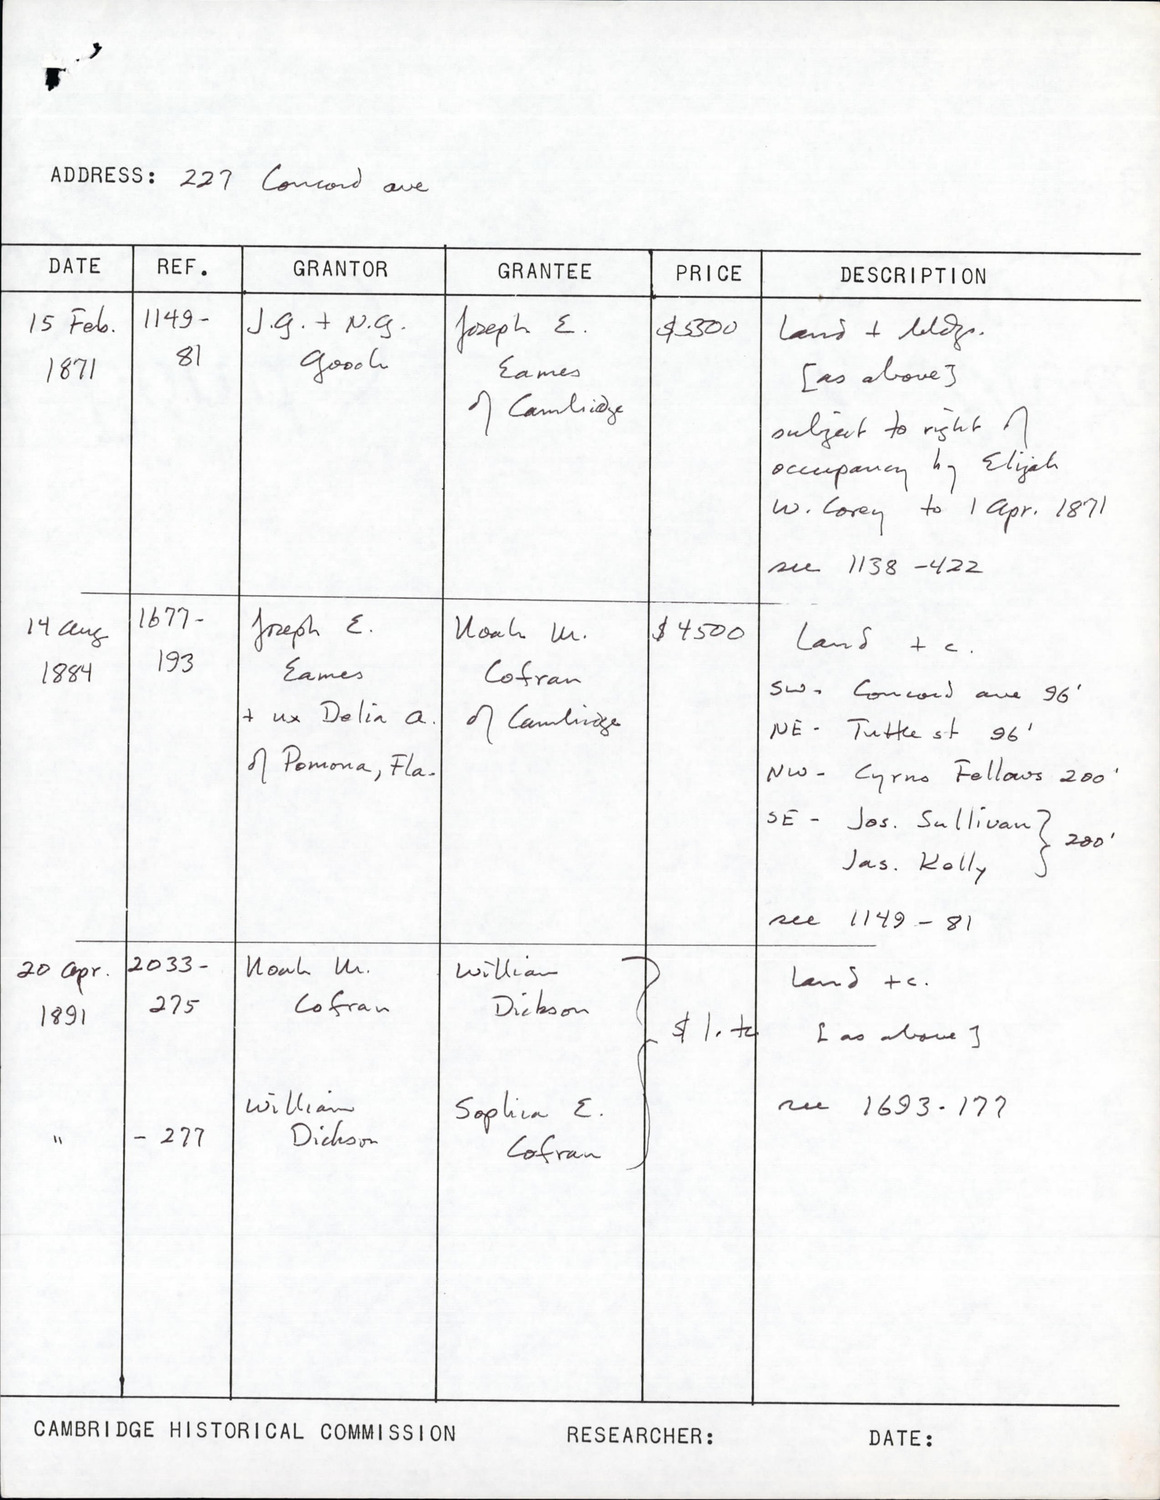 ADDRESS: 227 Concord ave
DATE REF. GRANTOR GRANTEE PRICE DESCRIPTION
15 Feb. 1871
1149-81
J.G. + N.G. Gooch
Joseph E. Eames of Cambridge
$5300
Land + bldgs.
[as above]
subject to right of
occupancy by Elijah
W. Corey to 1 Apr. 1871
see 1138-422
14 Aug 1884
1677-193
Joseph E. Eames
+ ux Delia A.
of Pomona, Fla.
Noah M. Cofran of Cambridge
$4500
Land + c.
SW- Concord ave 96'
NE- Tuttle st 96'
NW- Cyrus Fellows 200'
SE- Jos. Sullivan } 200'
Jas. Kelly
see 1149-81
20 Apr. 1891
2033-275
Noah M. Cofran
William Dickson
$1. tc
Land +c.
[as above]
see 1693-177
" -277
William Dickson
Sophia E. Cofran
CAMBRIDGE HISTORICAL COMMISSION RESEARCHER: DATE: